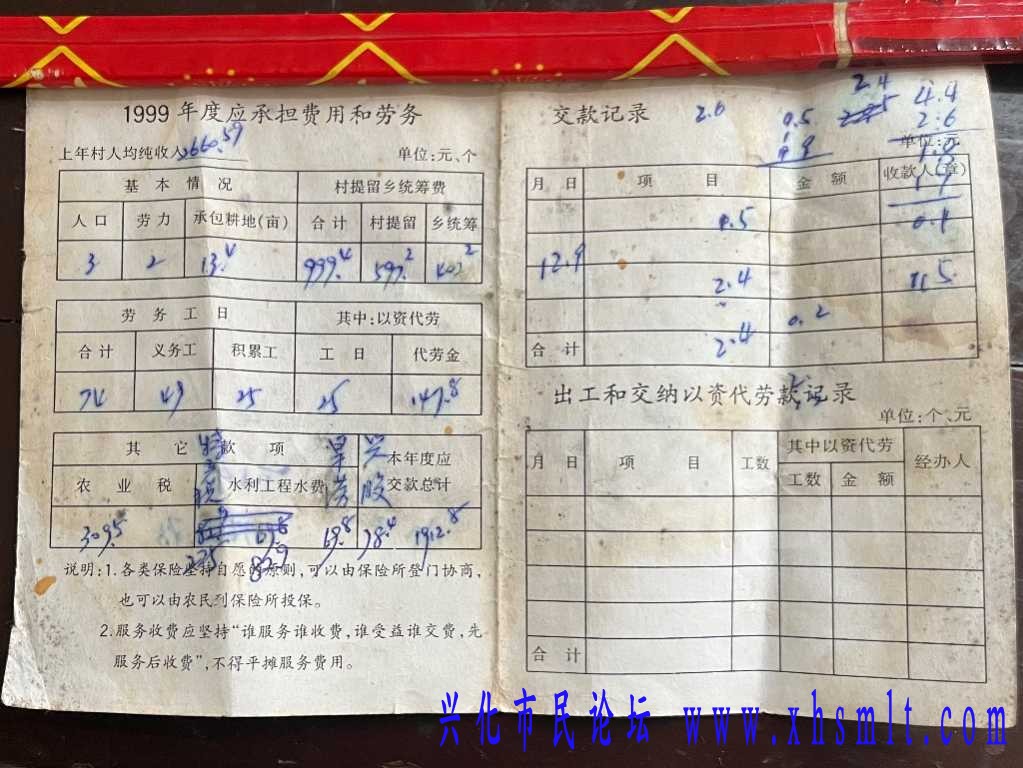 1999 年度应承担费用和劳务
上年村人均纯收入 3660.59
单位:元、个
基本情况 村提留乡统筹费
人口 劳力 承包耕地(亩) 合计 村提留 乡统筹
3 2 13.4 999.4 597.2 402.2
劳务工日 其中:以资代劳
合计 义务工 积累工 工日 代劳金
74 49 25 25 147.8
其它款项 本年度应
农业税 水利工程水费 交款总计
309.5 69.8 69.8 78.4 1912.8
225 829
说明:1.各类保险坚持自愿的原则,可以由保险所登门协商,
也可以由农民到保险所投保。
2.服务收费应坚持“谁服务谁收费,谁受益谁交费,先
服务后收费”,不得平摊服务费用。
交款记录
2.6 0.5 2.4 4.4
2.6
1.8
单位:元
月日 项目 金额 收款人(章)
0.5 0.1
12.9
2.4 11.5
0.2
合计 2.4
出工和交纳以资代劳款记录
单位:个、元
月日 项目 工数 其中以资代劳 经办人
工数 金额
合计
兴化市民论坛 www.xhsmlt.com